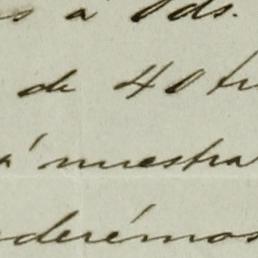 s a Vds.
de 40 tr
a nuestra
derémos